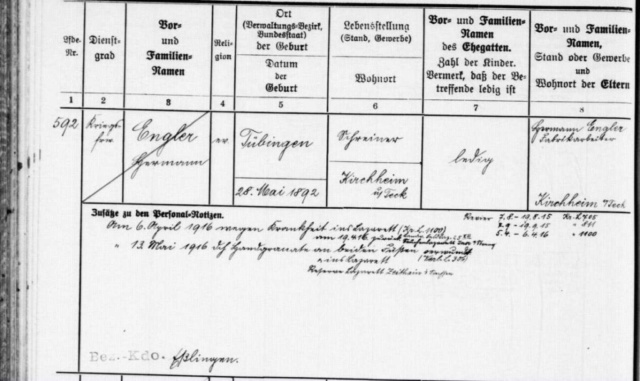 Lfde. Nr.
Dienst-
grad
Vor-
und
Familien-
Namen
Reli-
gion
Ort
(Verwaltungs-Bezirk,
Bundesstaat)
der Geburt
Datum
der
Geburt
Lebensstellung
(Stand, Gewerbe)
Wohnort
Vor- und Familien-
Namen
des Ehegatten.
Zahl der Kinder.
Vermerk, daß der Be-
treffende ledig ist
Vor- und Familien-
Namen,
Stand oder Gewerbe
und
Wohnort der Eltern
1 2 3 4 5 6 7 8
592
Kriegs-
freiw
Engler
Hermann
ev
Tübingen
28. Mai 1892
Schreiner
Kirchheim
u/Teck
ledig
Hermann Engler
Fabrikarbeiter
Kirchheim u/Teck
Zusätze zu den Personal-Notizen.
Am 6. April 1916 wegen Krankheit ins Lazarett
am 19.4.16 zurück
" 13. Mai 1916 dch Handgranate an beiden Füßen verwundet
" ins Lazarett
Reserve Lazarett
Revier 7.8.-19.8.15
5.4. - 6.4.16 " 1100
Bez.-Kdo. Eßlingen.